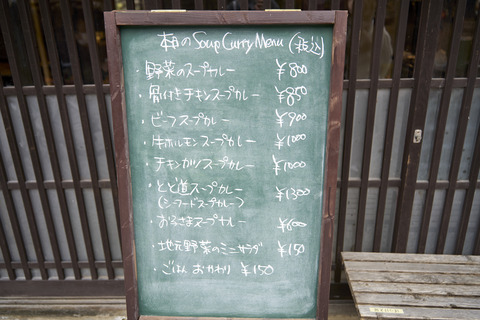 本日のSoup Curry Menu (税込)
・野菜のスープカレー ￥800
・骨付きチキンスープカレー ￥850
・ビーフスープカレー ￥900
・牛ホルモンスープカレー ￥1000
・チキンカツスープカレー ￥1000
・とど道スープカレー ￥1300
(シーフードスープカレー)
・お子さまスープカレー ￥600
・地元野菜のミニサラダ ￥150
・ごはん おかわり ￥150